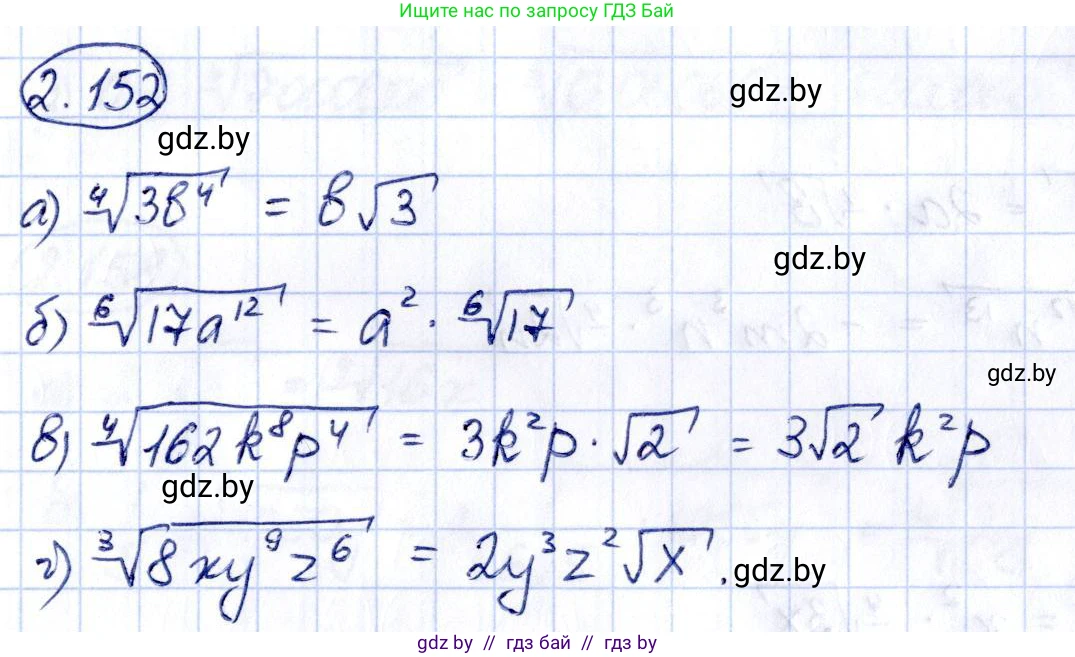 Ищите нас по запросу ГДЗ Бай
2.152
gdz.by
gdz.by
а) ∜(3в⁴) = в√3
gdz.by
б) ⁶√(17a¹²) = a² · ⁶√17
gdz.by
в) ∜(162k⁸p⁴) = 3k²p · √2 = 3√2 k²p
gdz.by
г) ∛(8xy⁹z⁶) = 2y³z²√x.
gdz.by
gdz by // гдз бай // гдз by